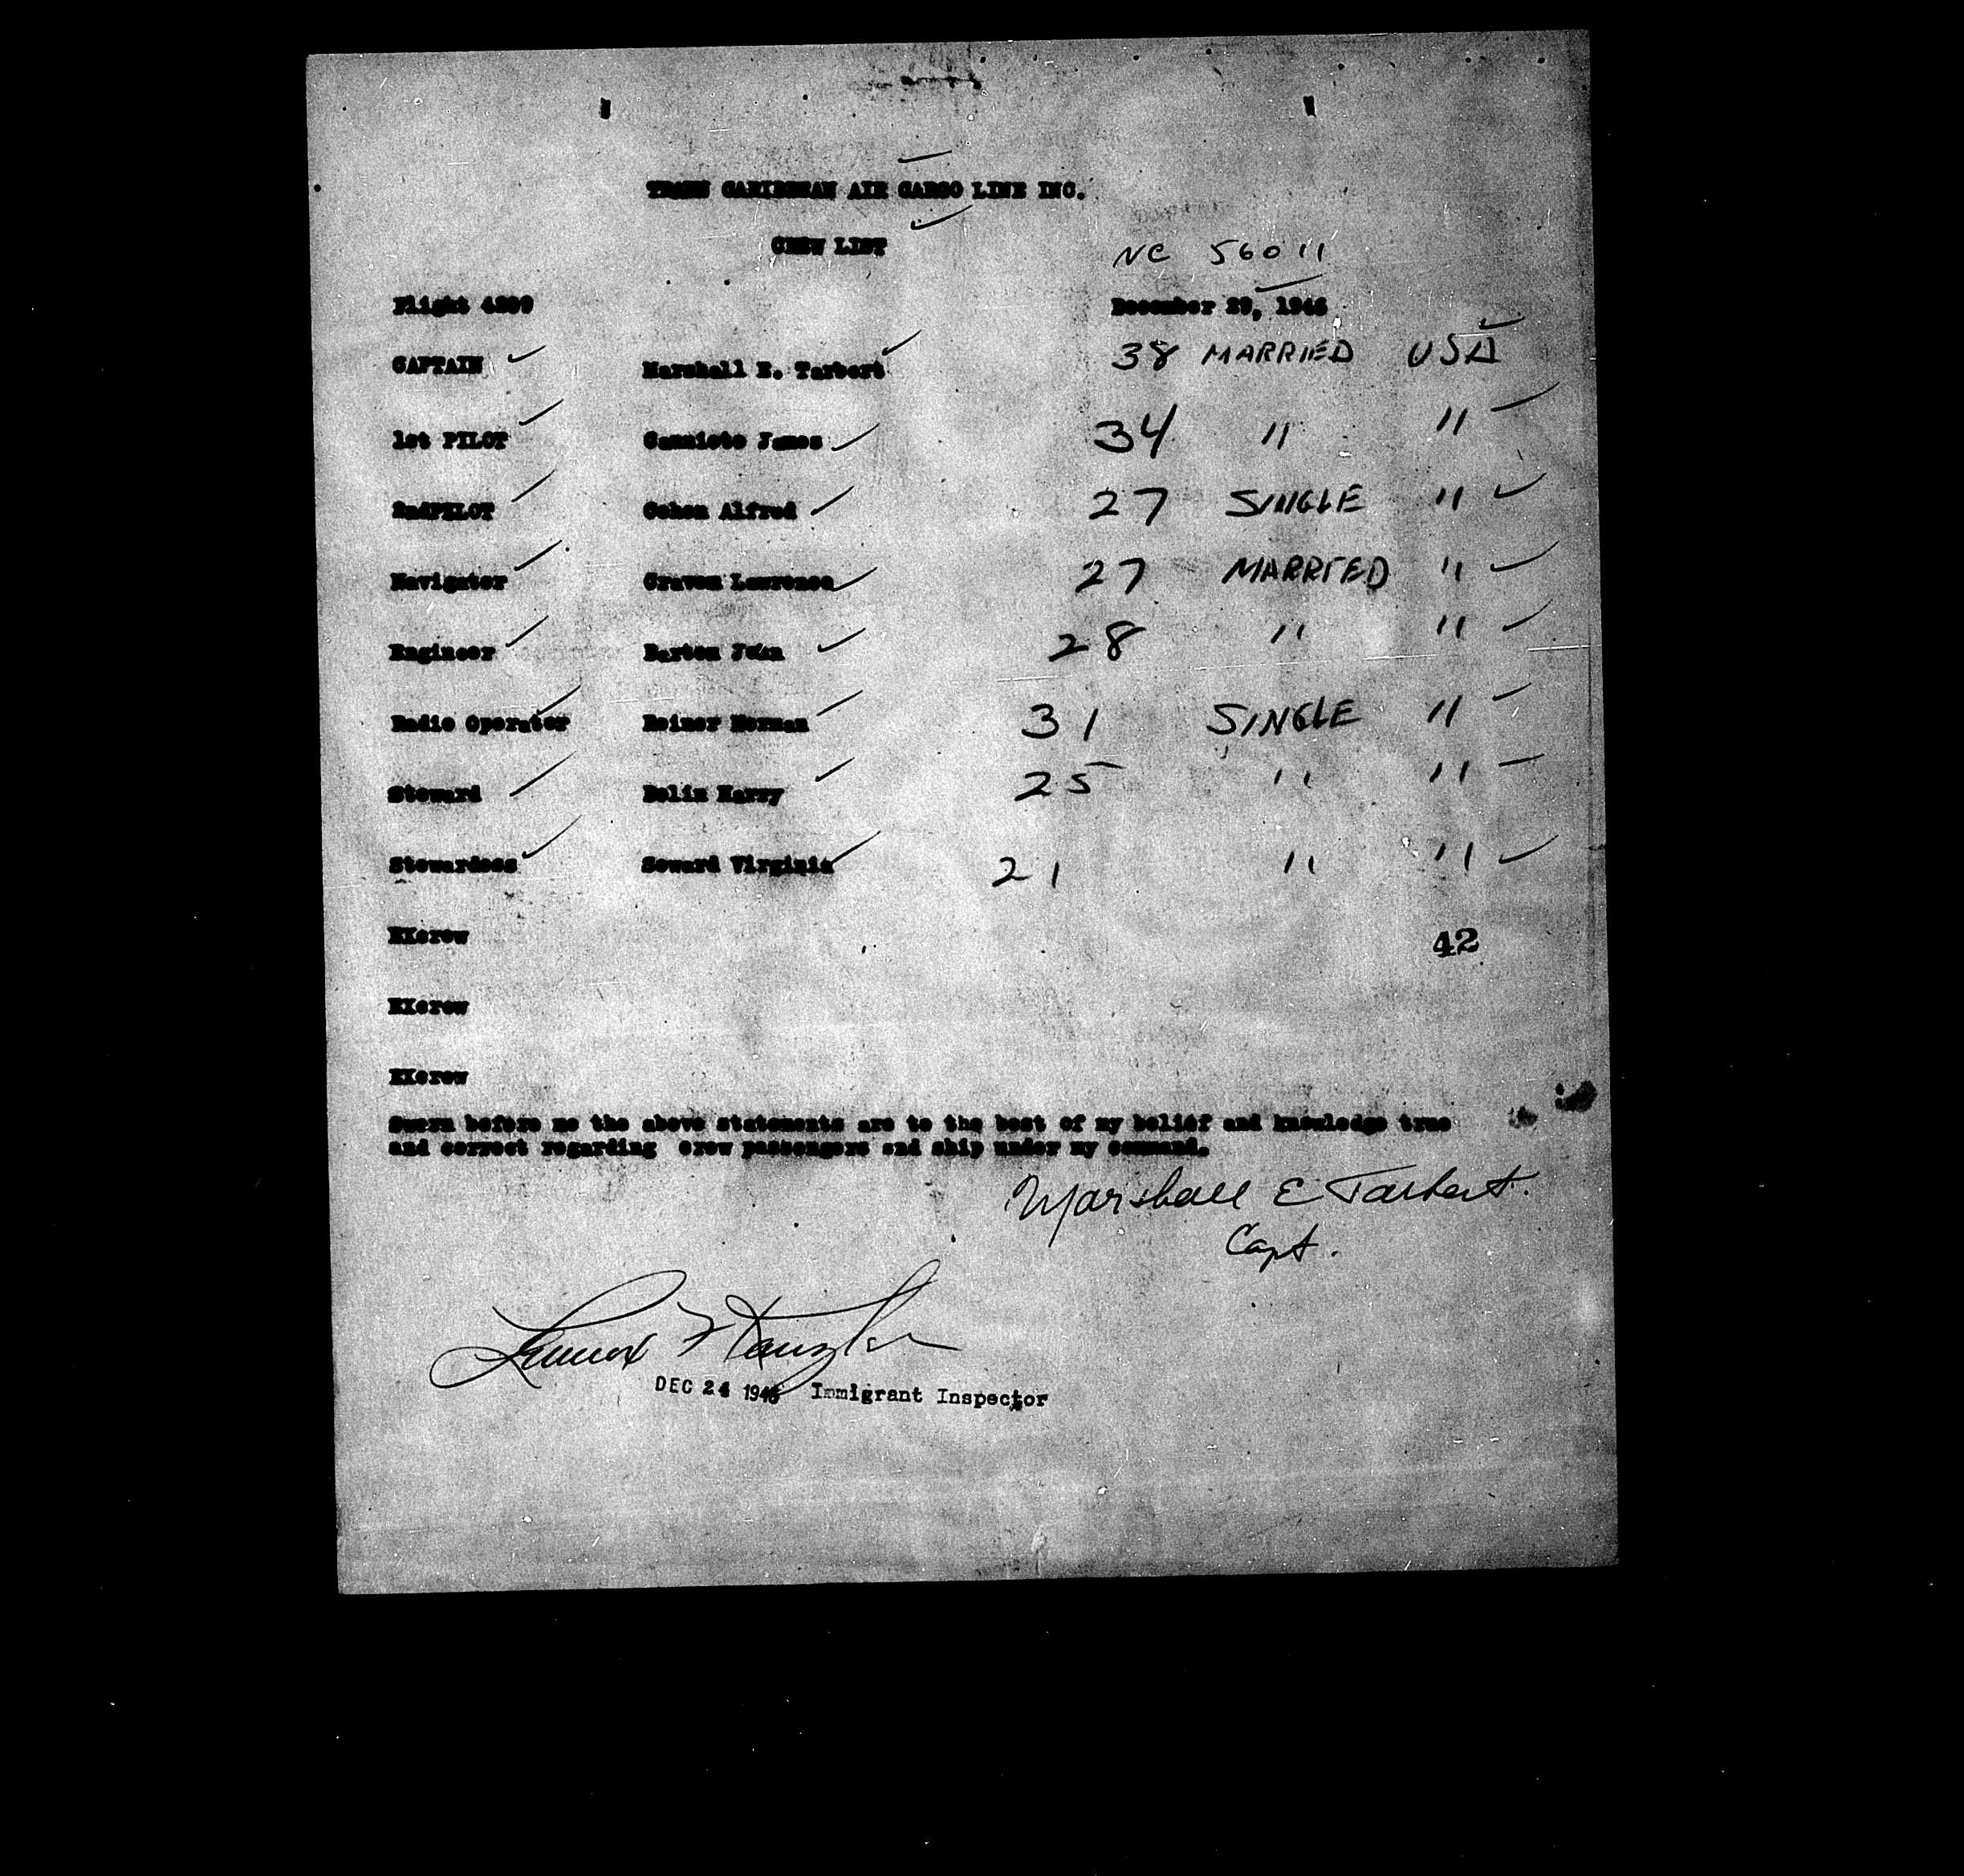 TRANS CARIBBEAN AIR CARGO LINE INC.
CREW LIST
NC 56011
Flight 4209 December 23, 1946
CAPTAIN Marshall E. Tarbert 38 MARRIED USA
1st PILOT James 34 " "
2ndPILOT Cohen Alfred 27 SINGLE "
Navigator Craven Lawrence 27 MARRIED "
Engineer Barton John 28 " "
Radio Operator Reiner Herman 31 SINGLE "
Steward Bolin Harry 25 " "
Stewardess Seward Virginia 21 " "
XXcrew 42
XXcrew
XXcrew
Sworn before me the above statements are to the best of my belief and knowledge true
and correct regarding crew passengers and ship under my command.
Marshall E Tarbert.
Capt.
DEC 24 1946 Immigrant Inspector